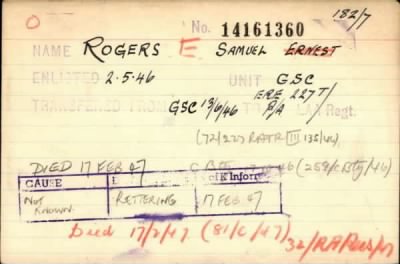 O 182/7
No. 14161360
NAME ROGERS E SAMUEL ERNEST
ENLISTED 2.5.46 UNIT GSC
ERE 227 T/
TRANSFERRED FROM GSC 13/6/46 TO R/A LAA Regt.
(72/227 RATR III 135/46)
DIED 17 FEB 47 46 (259/C Bty/46)
CAUSE of K Inform
NOT KNOWN. KETTERING 17 FEB 47
Died 17/2/47 (81/C/47) 32/RA